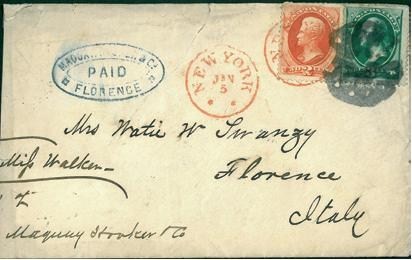 MAQUAY HOOKER & Co.
PAID
FLORENCE
NEW YORK
JAN
5
Mrs Watie W Swanzy
Miss Walker
Florence
Italy
Maquay Hooker & Co